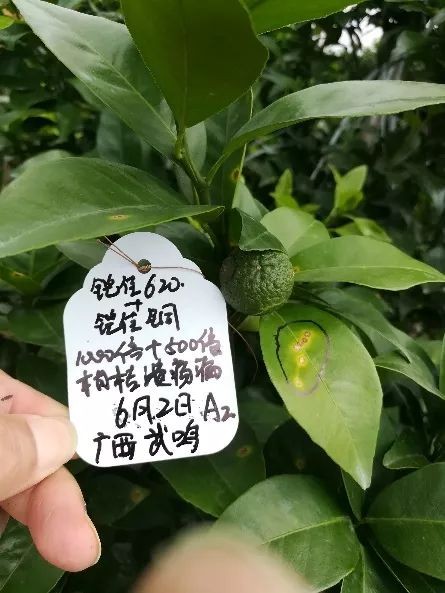 铠佳620.
+
铠佳铜
1000倍+500倍
柑桔溃疡病
6月2日 A2
广西武鸣